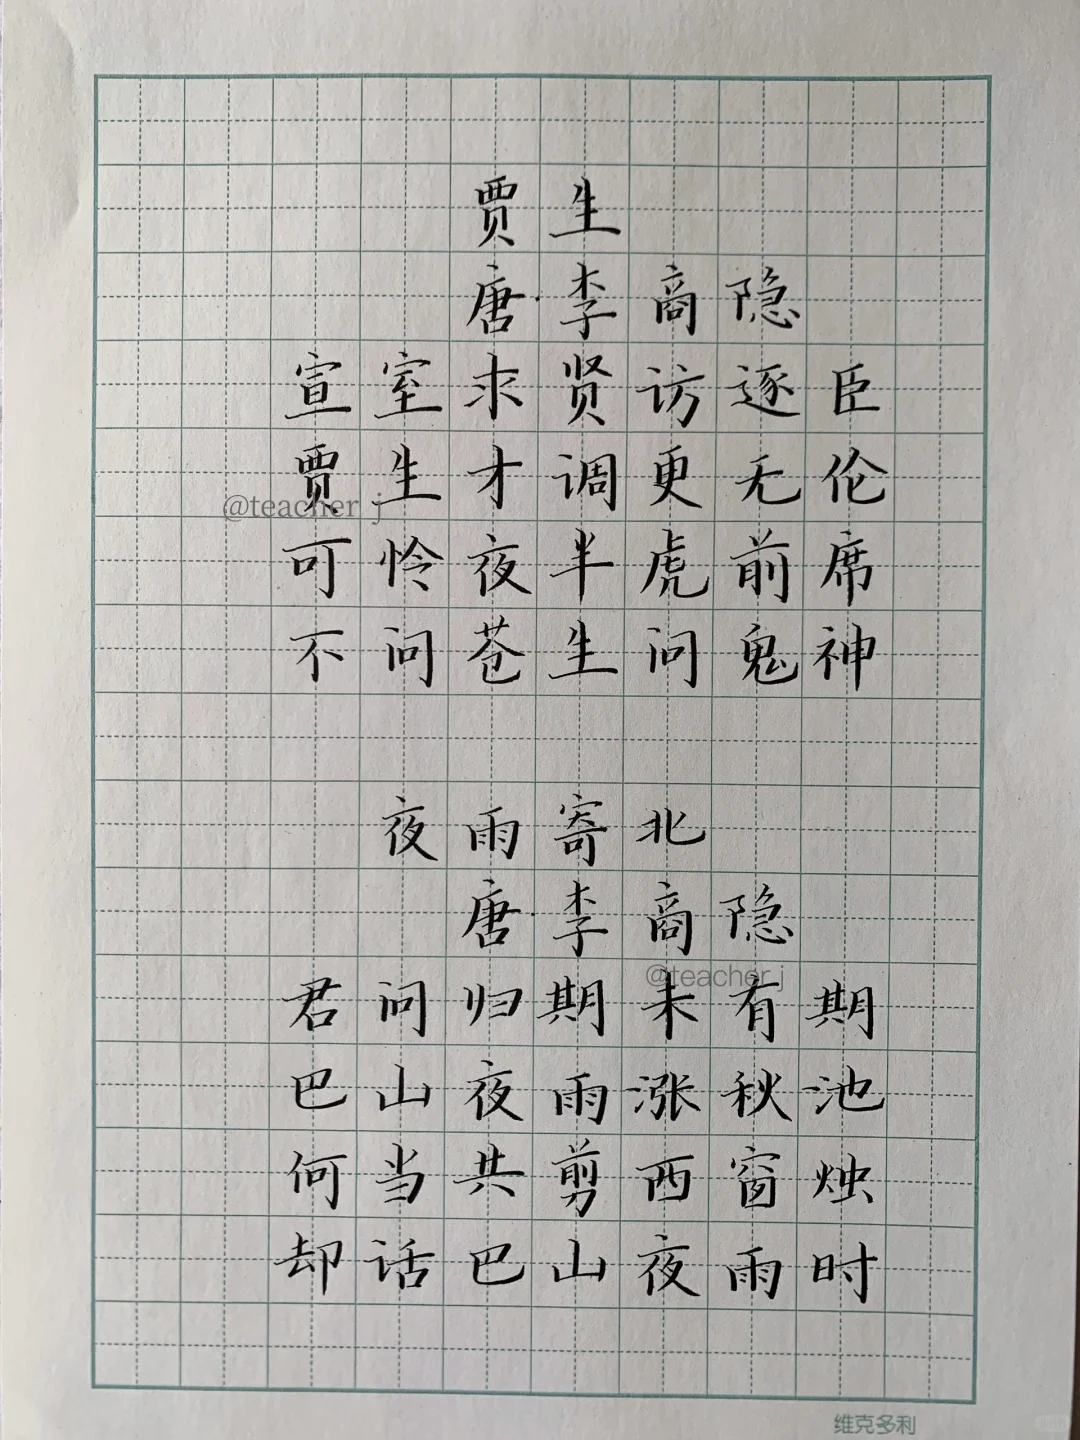 贾生
唐·李商隐
宣室求贤访逐臣
贾生才调更无伦
@teacher j
可怜夜半虎前席
不问苍生问鬼神
夜雨寄北
唐·李商隐
@teacher j
君问归期未有期
巴山夜雨涨秋池
何当共剪西窗烛
却话巴山夜雨时
维克多利